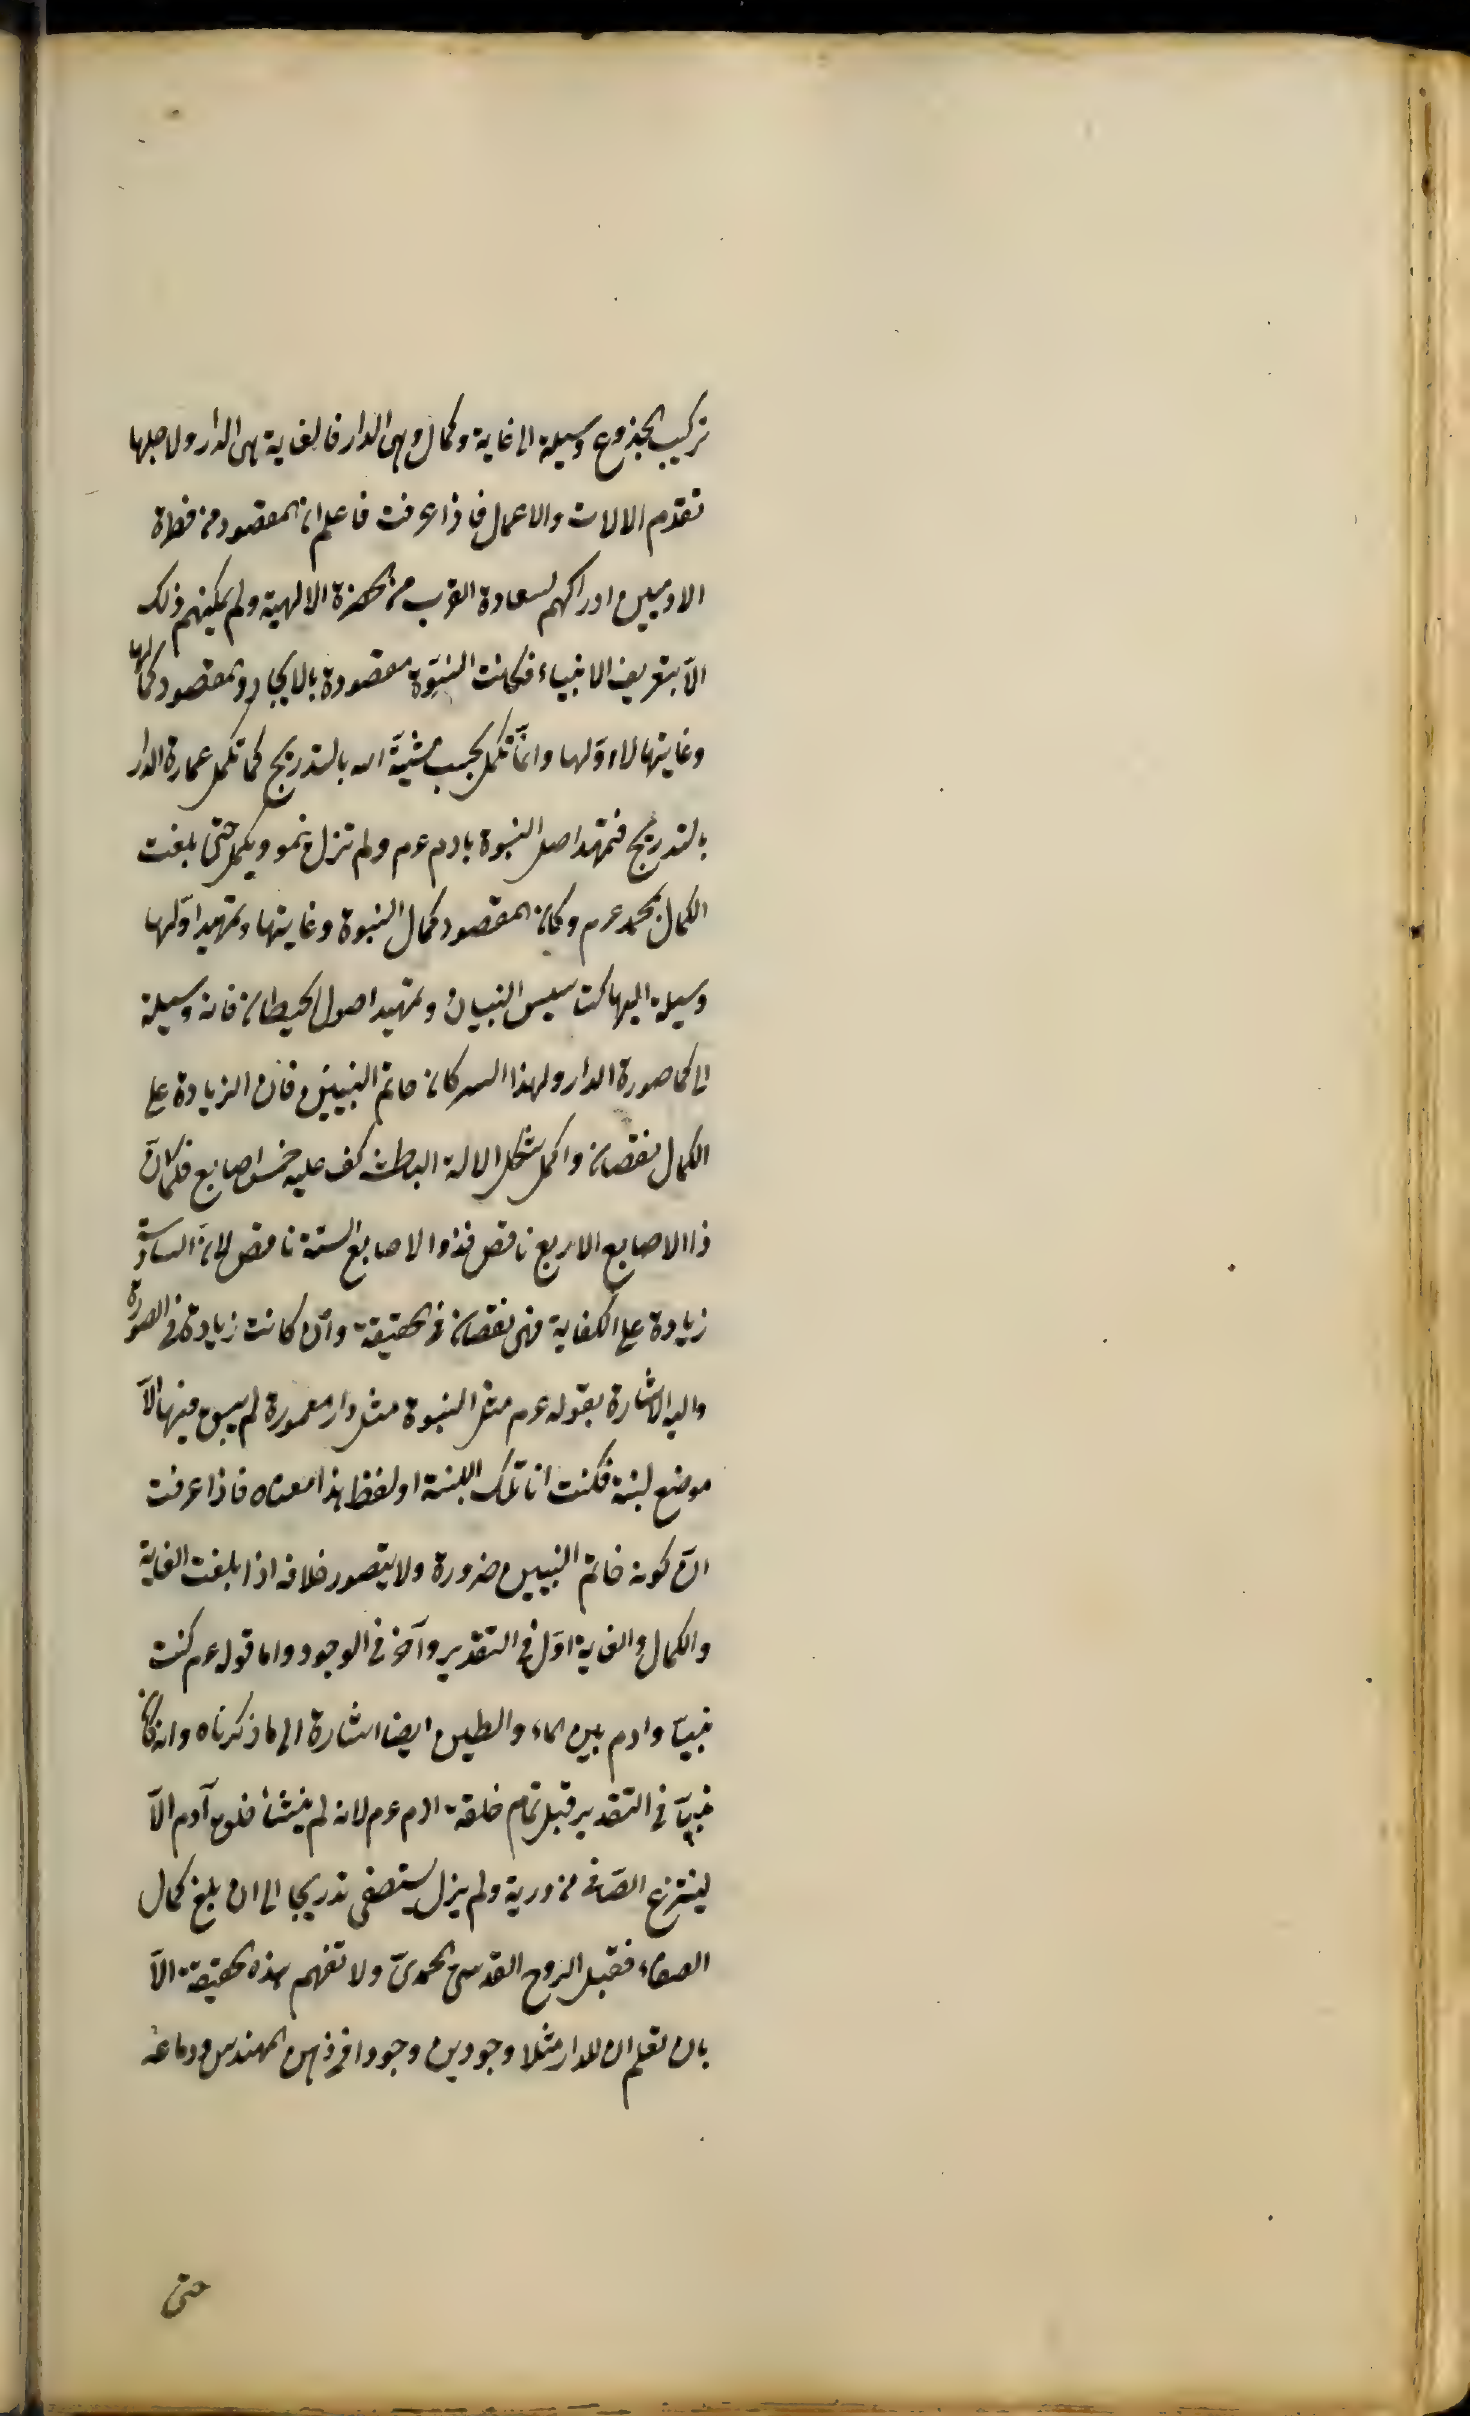 تركيب الجذوع وسيلة الى غاية وكمال وهى الدار فالغاية هى الدار ولاجلها
تقدم الالات والاعمال فاذا عرفت فاعلم ان المقصود من فطرة
الادميين ادراكهم لسعادة القرب من الحضرة الالهية ولم يمكنهم ذلك
الّا بتعريف الانبياء فكانت النبوّة مقصودة بالايجاد والمقصود كمالها
وغايتها لا اوّلها وانّما تكمل بحسب مشيّة الله بالتدريج كما تكمل عمارة الدار
بالتدريج فتمهّد اصل النبوة بادم عم ولم تزل تنمو ويكمل حتى بلغت
الكمال بمحمد عم وكان المقصود كمال النبوة وغايتها وتمهيد اوّلها
وسيلة اليها كتاسيس البنيان وتمهيد اصول الحيطان فانه وسيلة
الى كمال صورة الدار ولهذا السر كان خاتم النبيين فان الزيادة على
الكمال نقصان واكمل شكل الالة الباطشة كف عليه خمس اصابع فكما انّ
ذا الاصابع الاربع ناقص فذوا الاصابع الستة ناقص لان السادسة
زيادة على الكفاية فهى نقصان فى الحقيقة وان كانت زيادة فى الصورة
واليه الاشارة بقوله عم مثل النبوة مثل دار معمورة لم يبق فيها الّا
موضع لبنة فكنت انا تلك اللبنة او لفظ هذا معناه فاذا عرفت
انّ كونه خاتم النبيين ضرورة ولا يتصور خلافه اذا بلغت الغاية
والكمال والغاية اوّل فى التقدير وآخر فى الوجود واما قوله عم كنت
نبيّا وادم بين الماء والطين ايضا اشارة الى ما ذكرناه وانه كان
نبيّا فى التقدير قبل تمام خلقة ادم عم لانه لم ينشأ خلق آدم الّا
لينتزع الصّافى من ذرية ولم يزل يستصفى تدريجا الى ان بلغ كمال
الصفاء فقبل الروح القدسى المحمدىّ ولا تفهم هذه الحقيقة الّا
بان تعلم ان للدار مثلا وجودين وجودا فى ذهن المهندس ودماغه
حتى